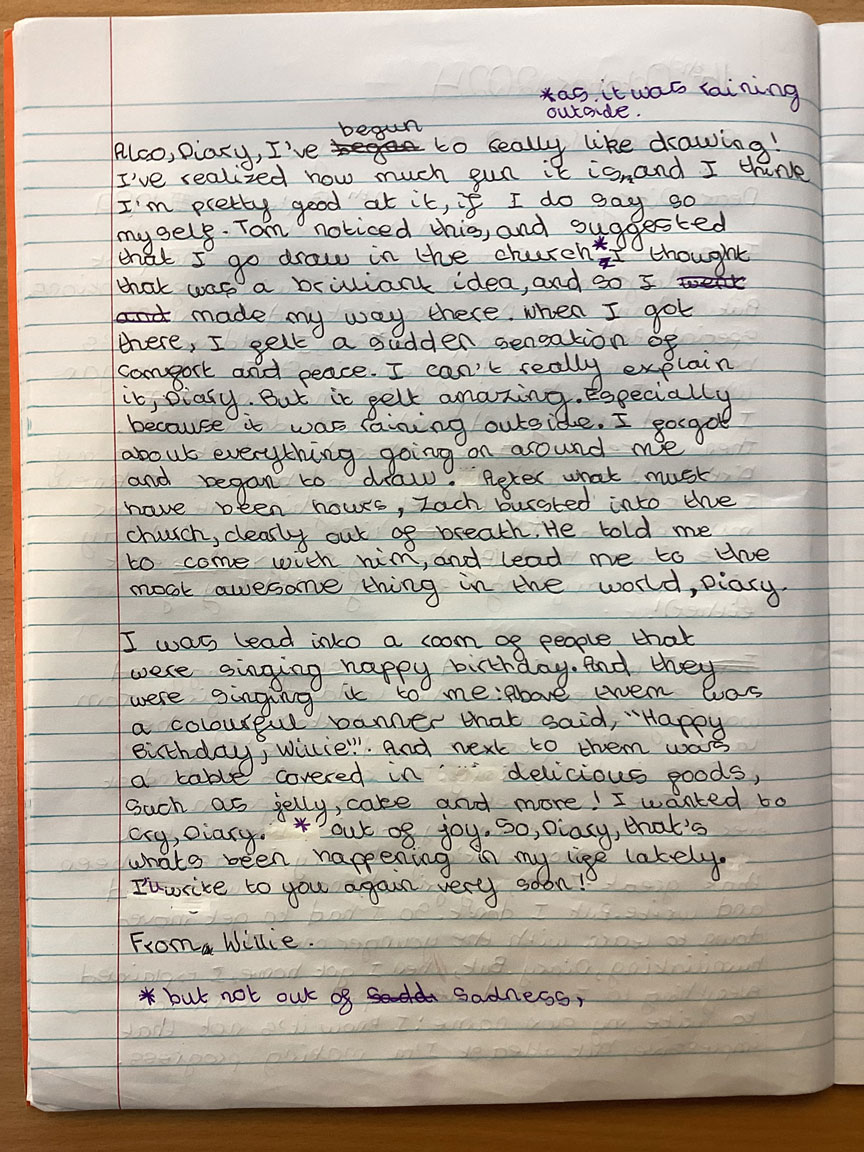 *as it was raining
outside.
begun
Also, Diary, I've began to really like drawing!
I've realized how much fun it is, and I think
I'm pretty good at it, if I do say so
myself. Tom noticed this, and suggested
that I go draw in the church* I thought
that was a brilliant idea, and so I went
and made my way there. When I got
there, I felt a sudden sensation of
comfort and peace. I can't really explain
it, Diary. But it felt amazing. Especially
because it was raining outside. I forgot
about everything going on around me
and began to draw. After what must
have been hours, Zach bursted into the
church, clearly out of breath. He told me
to come with him, and lead me to the
most awesome thing in the world, Diary.
I was lead into a room of people that
were singing happy birthday. And they
were singing it to me! Above them was
a colourful banner that said, "Happy
Birthday, Willie!". And next to them was
a table covered in delicious goods,
such as jelly, cake and more! I wanted to
cry, Diary. * out of joy. So, Diary, that's
whats been happening in my life lately.
I'll write to you again very soon!
From, Willie.
* but not out of sadd sadness,